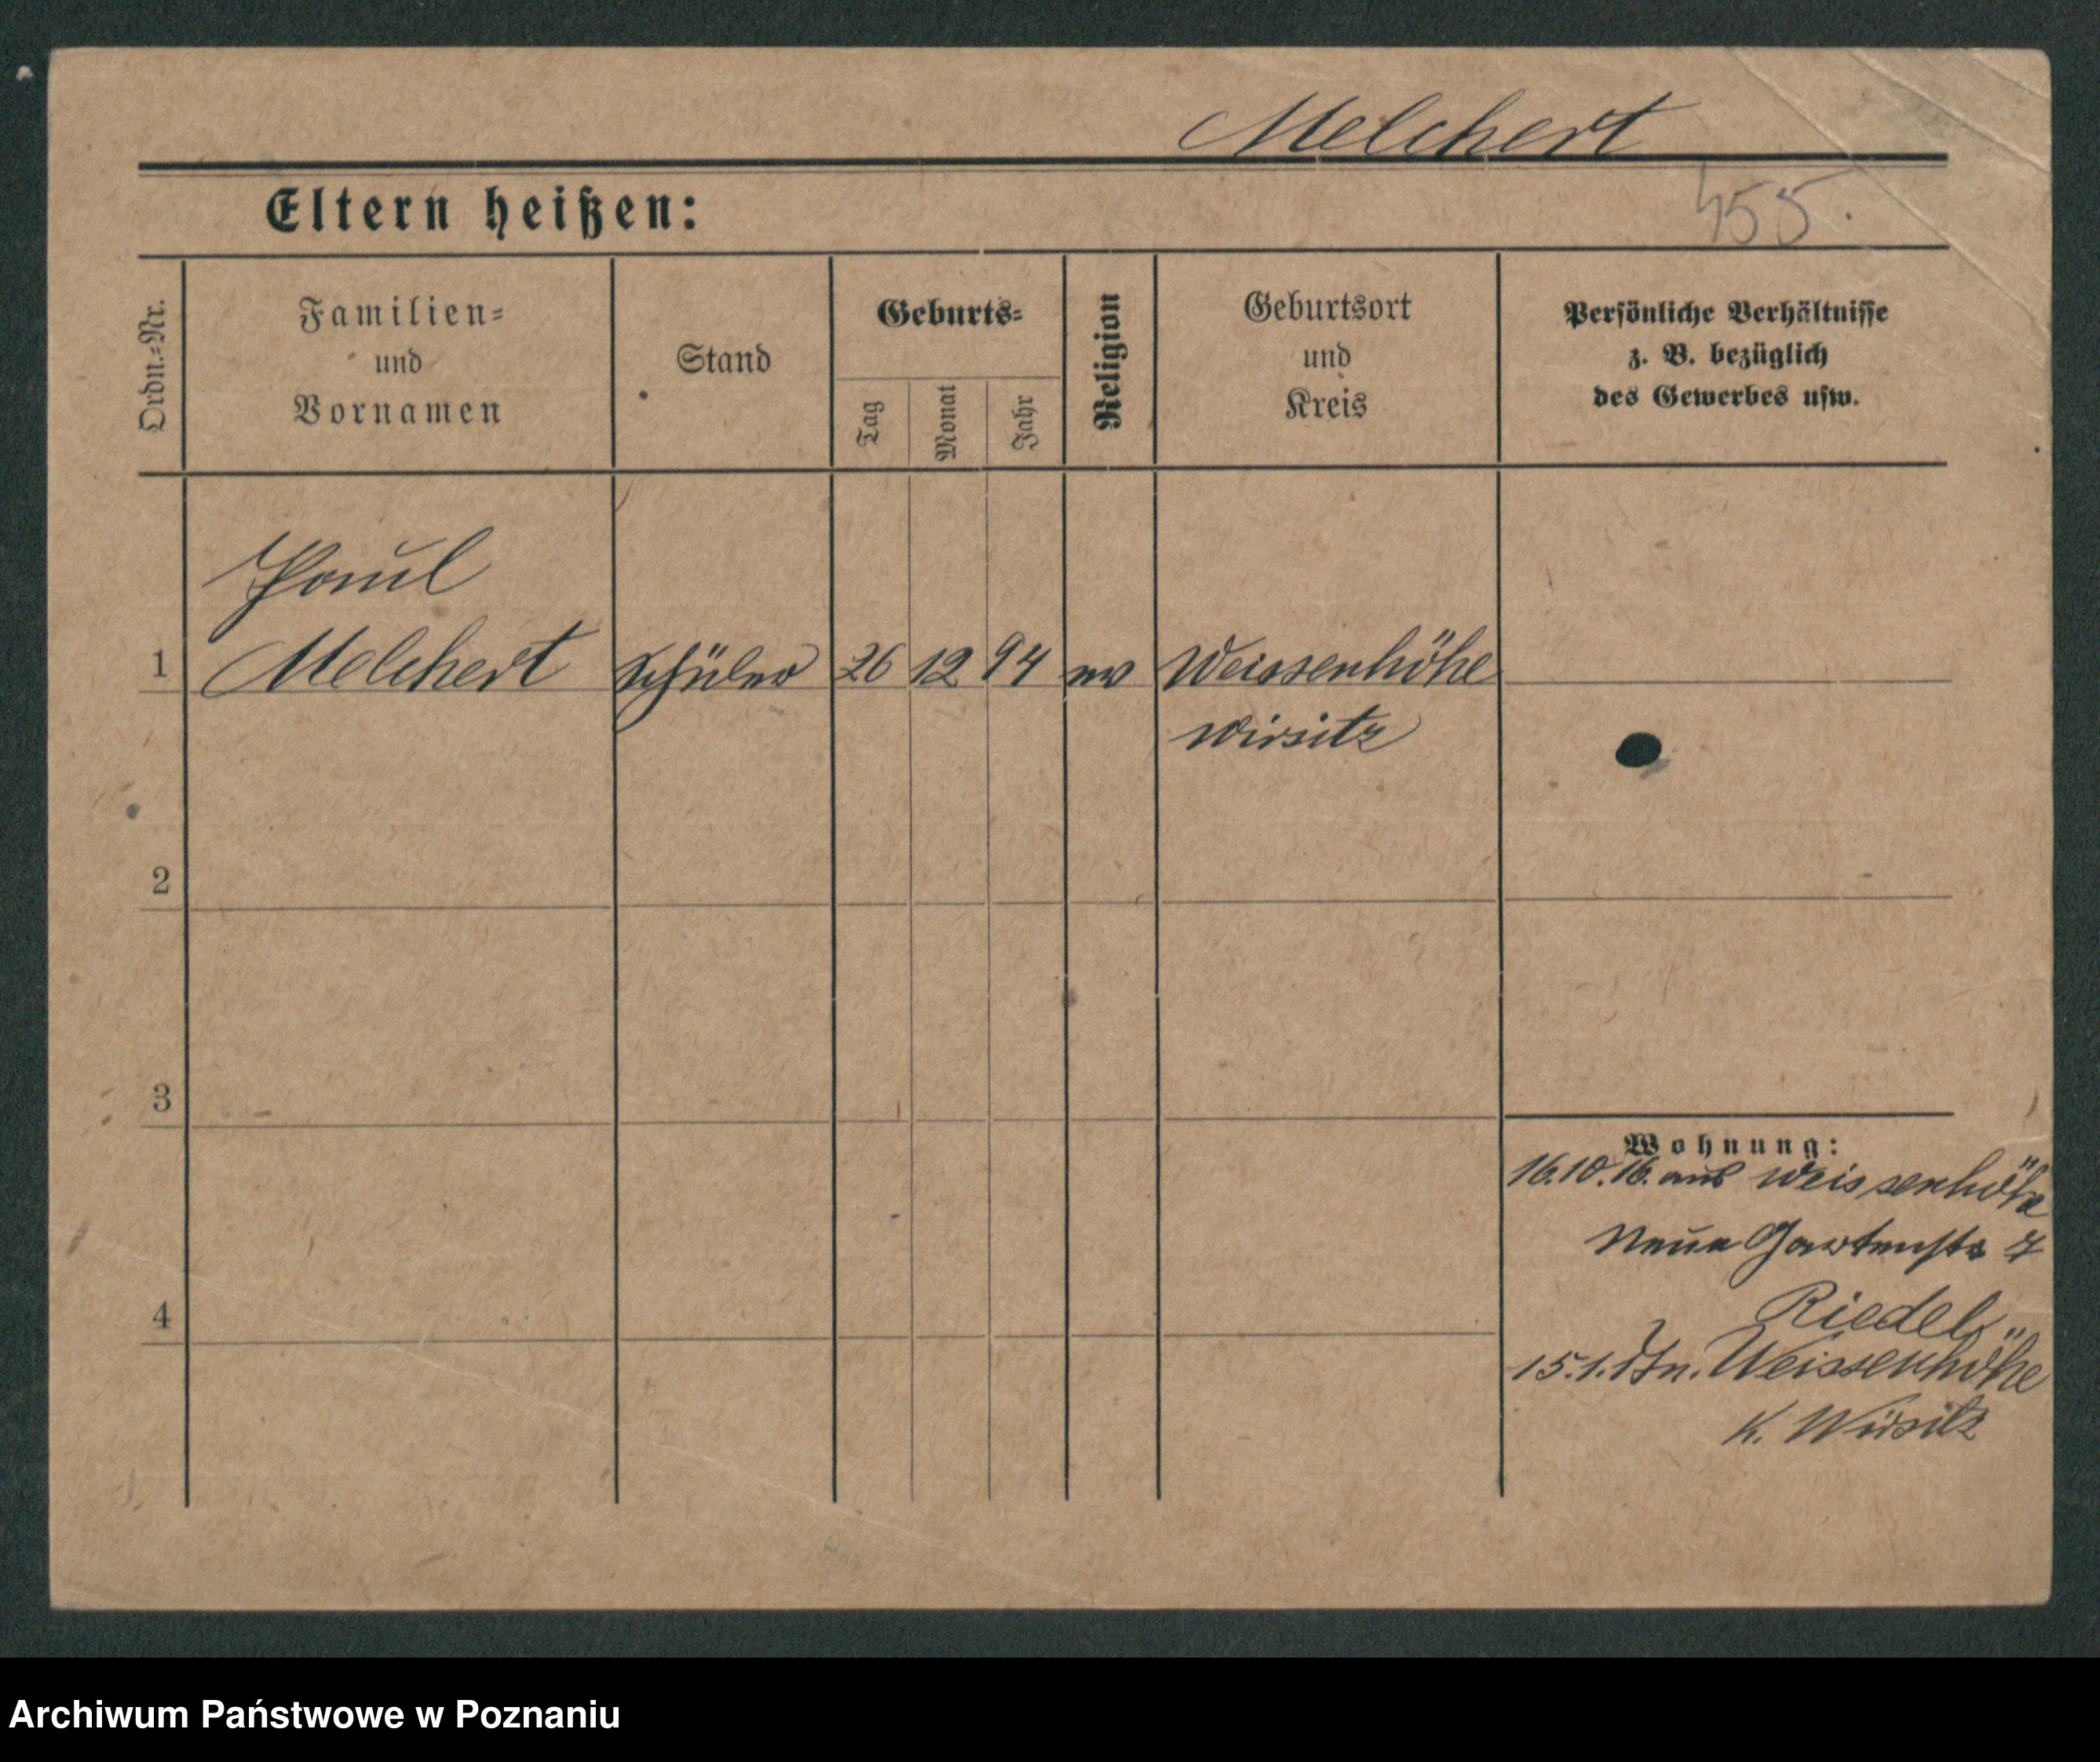 Melchert
455.
Eltern heißen:
Ordn.=Nr.
Familien=
und
Vornamen
Stand
Geburts=
Tag
Monat
Jahr
Religion
Geburtsort
und
Kreis
Persönliche Verhältnisse
z. B. bezüglich
des Gewerbes usw.
Paul
1 Melchert Schüler 26 12 94 ev Weissenhöhe
Wirsitz
2
3
Wohnung:
16.10.16. aus Weissenhöhe
Neue Gartenstr 7
Riedel
4
15.1.17 n. Weissenhöhe
K. Wirsitz
Archiwum Państwowe w Poznaniu